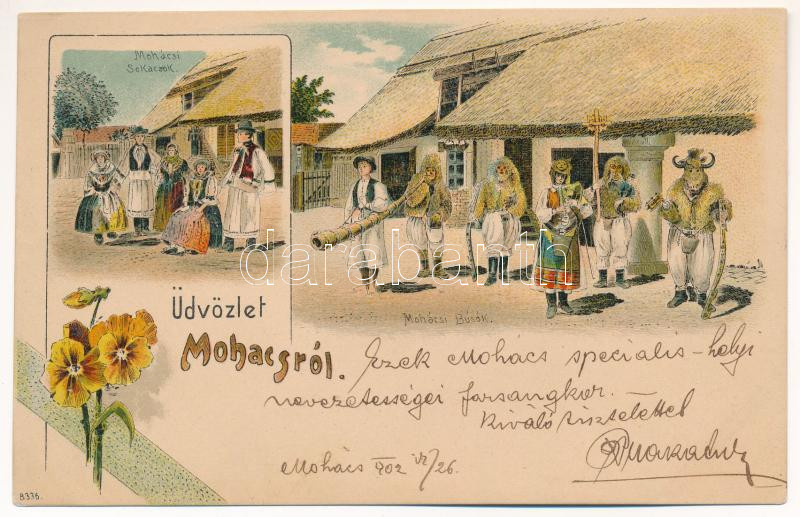 Mohácsi
Sokacsok.
Mohácsi Busók.
Üdvözlet
Mohacsról.
Ezek Mohács speciális-helyi
nevezetességei farsangkor.
Kiváló tisztelettel
Mohács 902 26.
8336.
darabanth